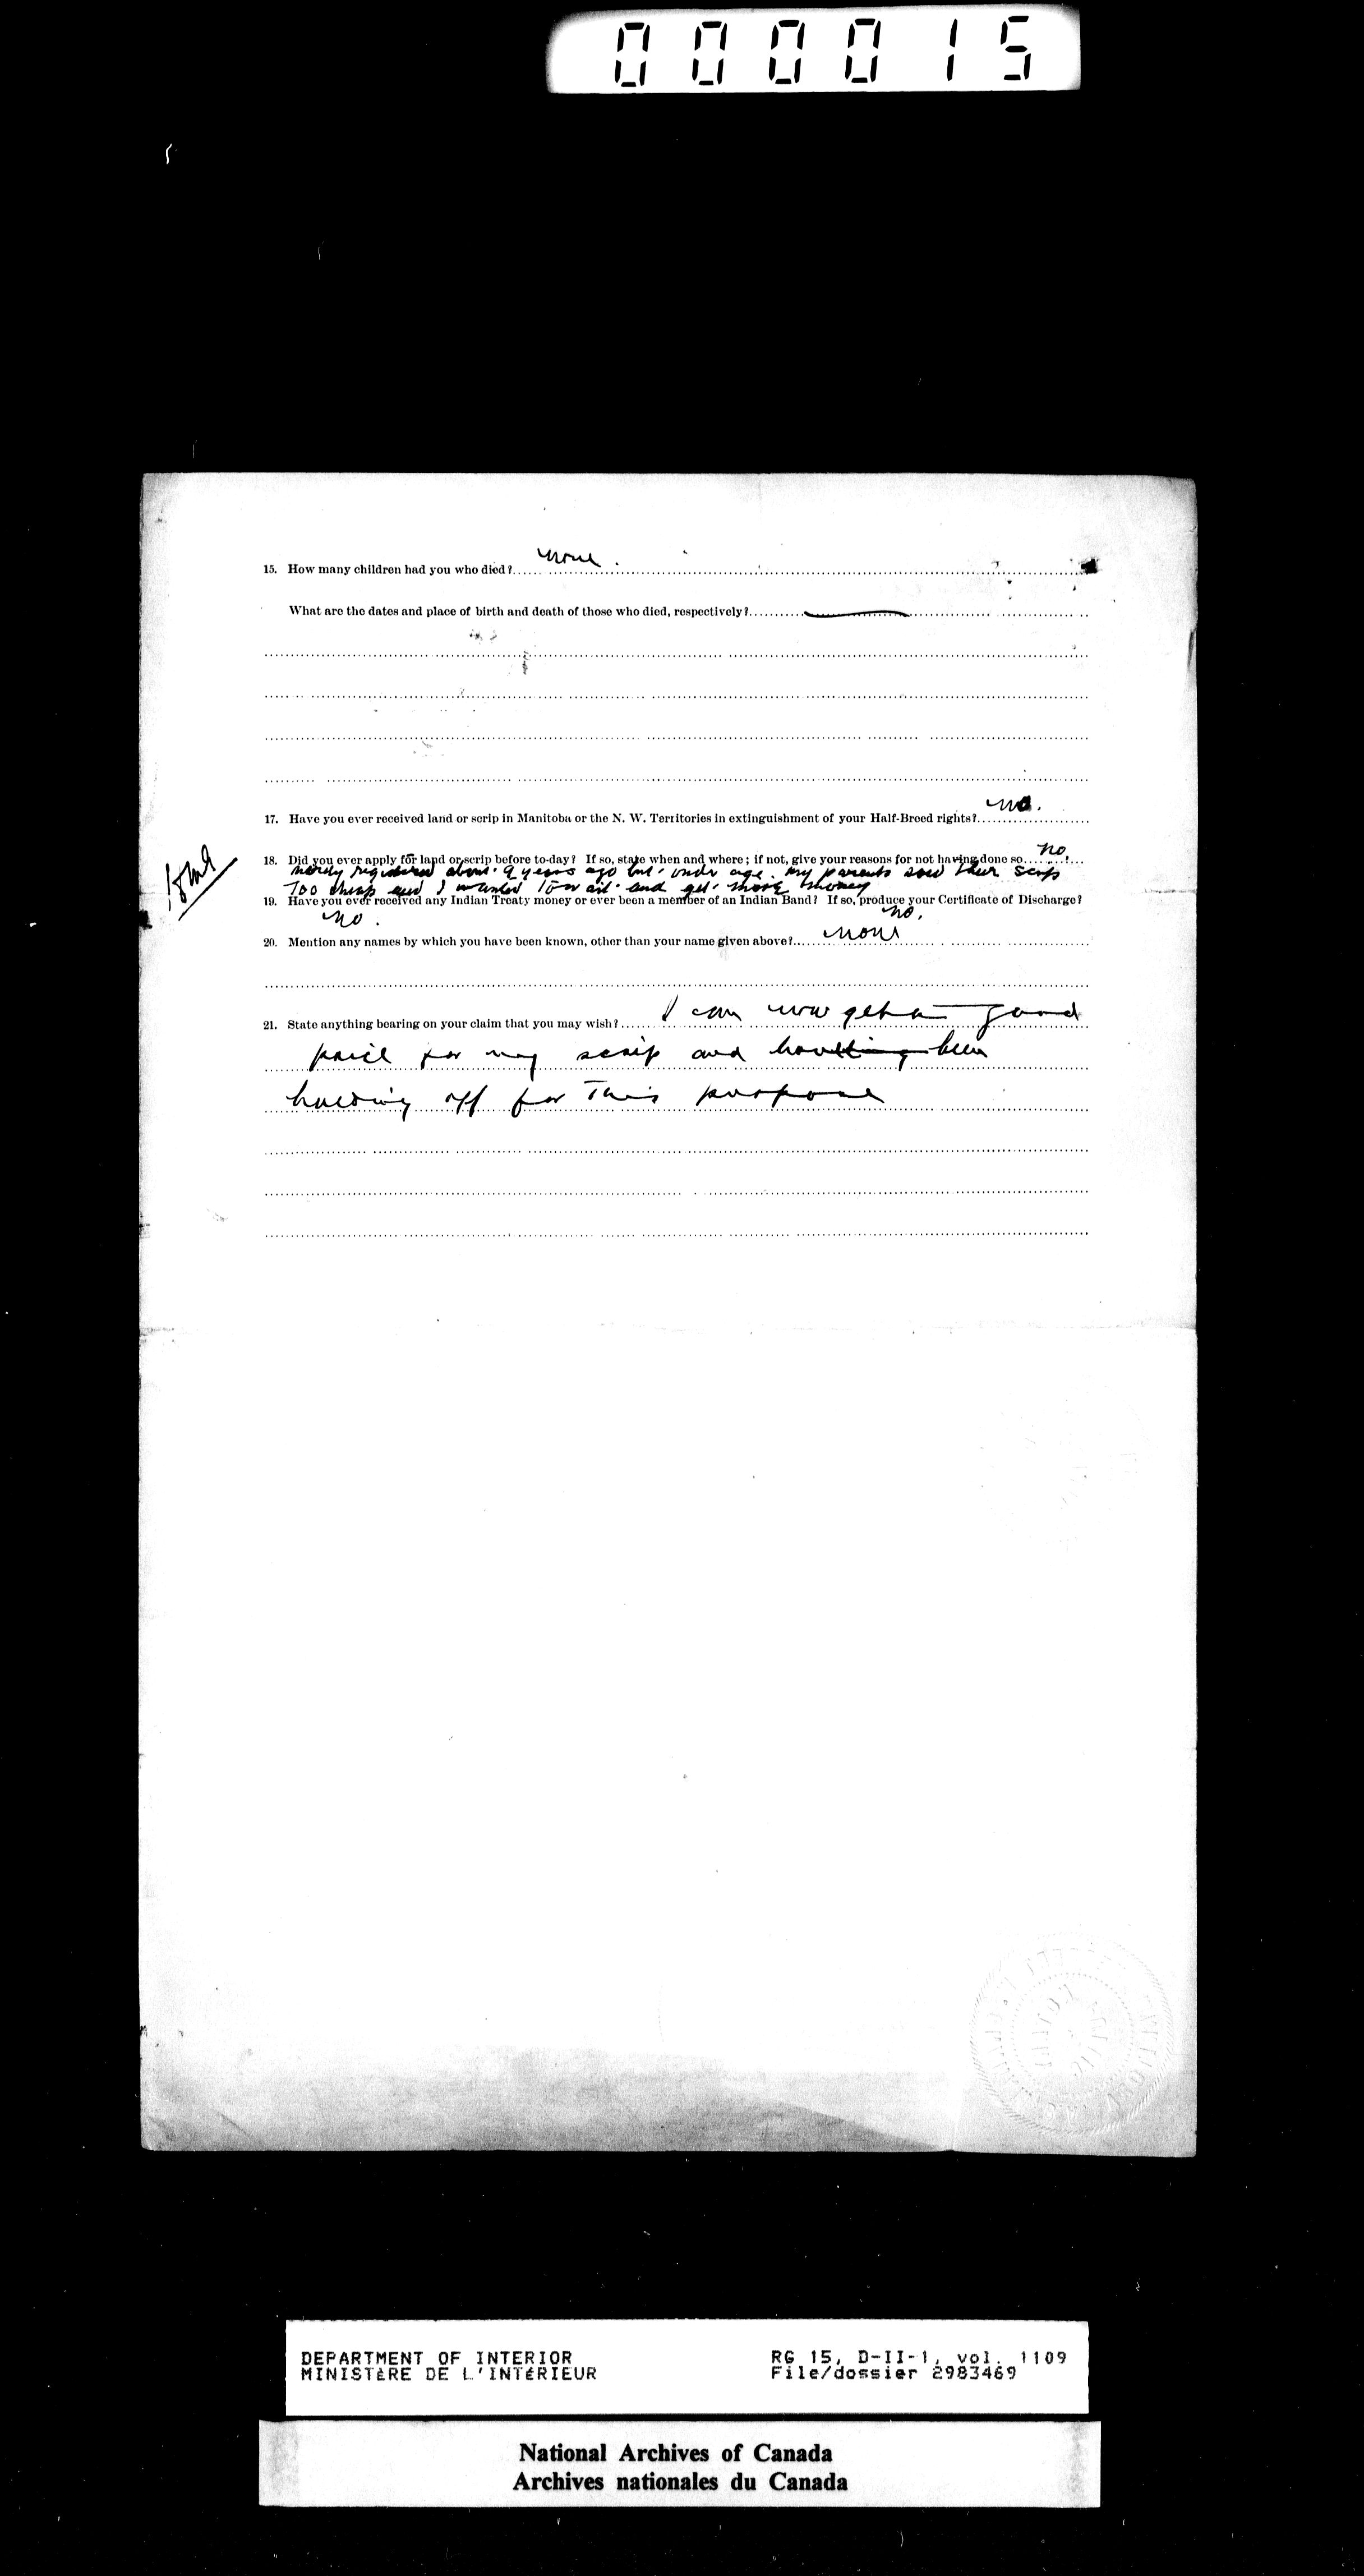 000015
15. How many children had you who died? none.
What are the dates and place of birth and death of those who died, respectively?
17. Have you ever received land or scrip in Manitoba or the N. W. Territories in extinguishment of your Half-Breed rights? no.
18. Did you ever apply for land or scrip before to-day? If so, state when and where; if not, give your reasons for not having done so. no
merely registered about 9 years ago but under age. my parents sold their scrip
too cheap and I wanted to wait and get more money
19. Have you ever received any Indian Treaty money or ever been a member of an Indian Band? If so, produce your Certificate of Discharge?
no. no.
20. Mention any names by which you have been known, other than your name given above? none
21. State anything bearing on your claim that you may wish? I can now get a good
price for my scrip and have been
holding off for this purpose
DEPARTMENT OF INTERIOR
MINISTÈRE DE L'INTÉRIEUR
RG 15, D-II-1, vol. 1109
File/dossier 2983469
National Archives of Canada
Archives nationales du Canada